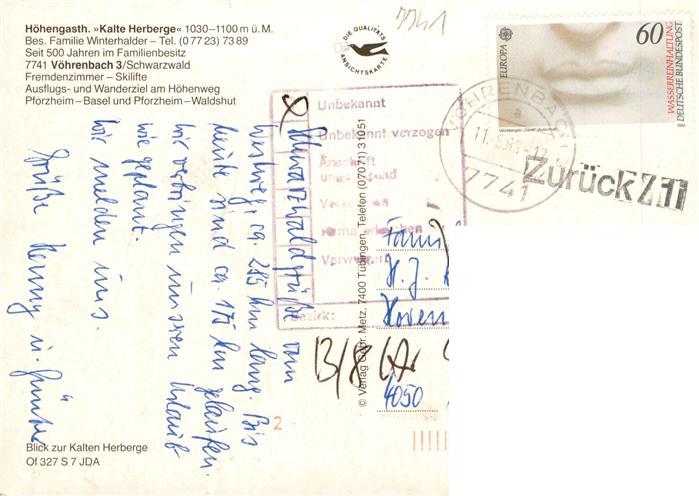 Höhengasth. »Kalte Herberge« 1030–1100 m ü. M.
Bes. Familie Winterhalder – Tel. (0 77 23) 73 89
Seit 500 Jahren im Familienbesitz
7741 Vöhrenbach 3/Schwarzwald
Fremdenzimmer – Skilifte
Ausflugs- und Wanderziel am Höhenweg
Pforzheim – Basel und Pforzheim – Waldshut
7741
DIE QUALITÄTS
ANSICHTSKARTE
EUROPA
60
WASSERREINHALTUNG
DEUTSCHE BUNDESPOST
VÖHRENBACH
a
7741
Zurück Z 11
Unbekannt
Unbekannt verzogen
Anschrift
Firma erloschen
Bezirk:
Schwarzwaldgrüße vom
Westweg, ca. 285 km lang. Bis
heute sind ca. 175 km gelaufen.
Wir verbringen unseren Urlaub
wie geplant.
Wir melden uns.
Grüße
© Verlag Gebr. Metz, 7400 Tübingen, Telefon (07071) 31051
Fam
H. J.
Hoven
4050
2
Blick zur Kalten Herberge
Of 327 S 7 JDA